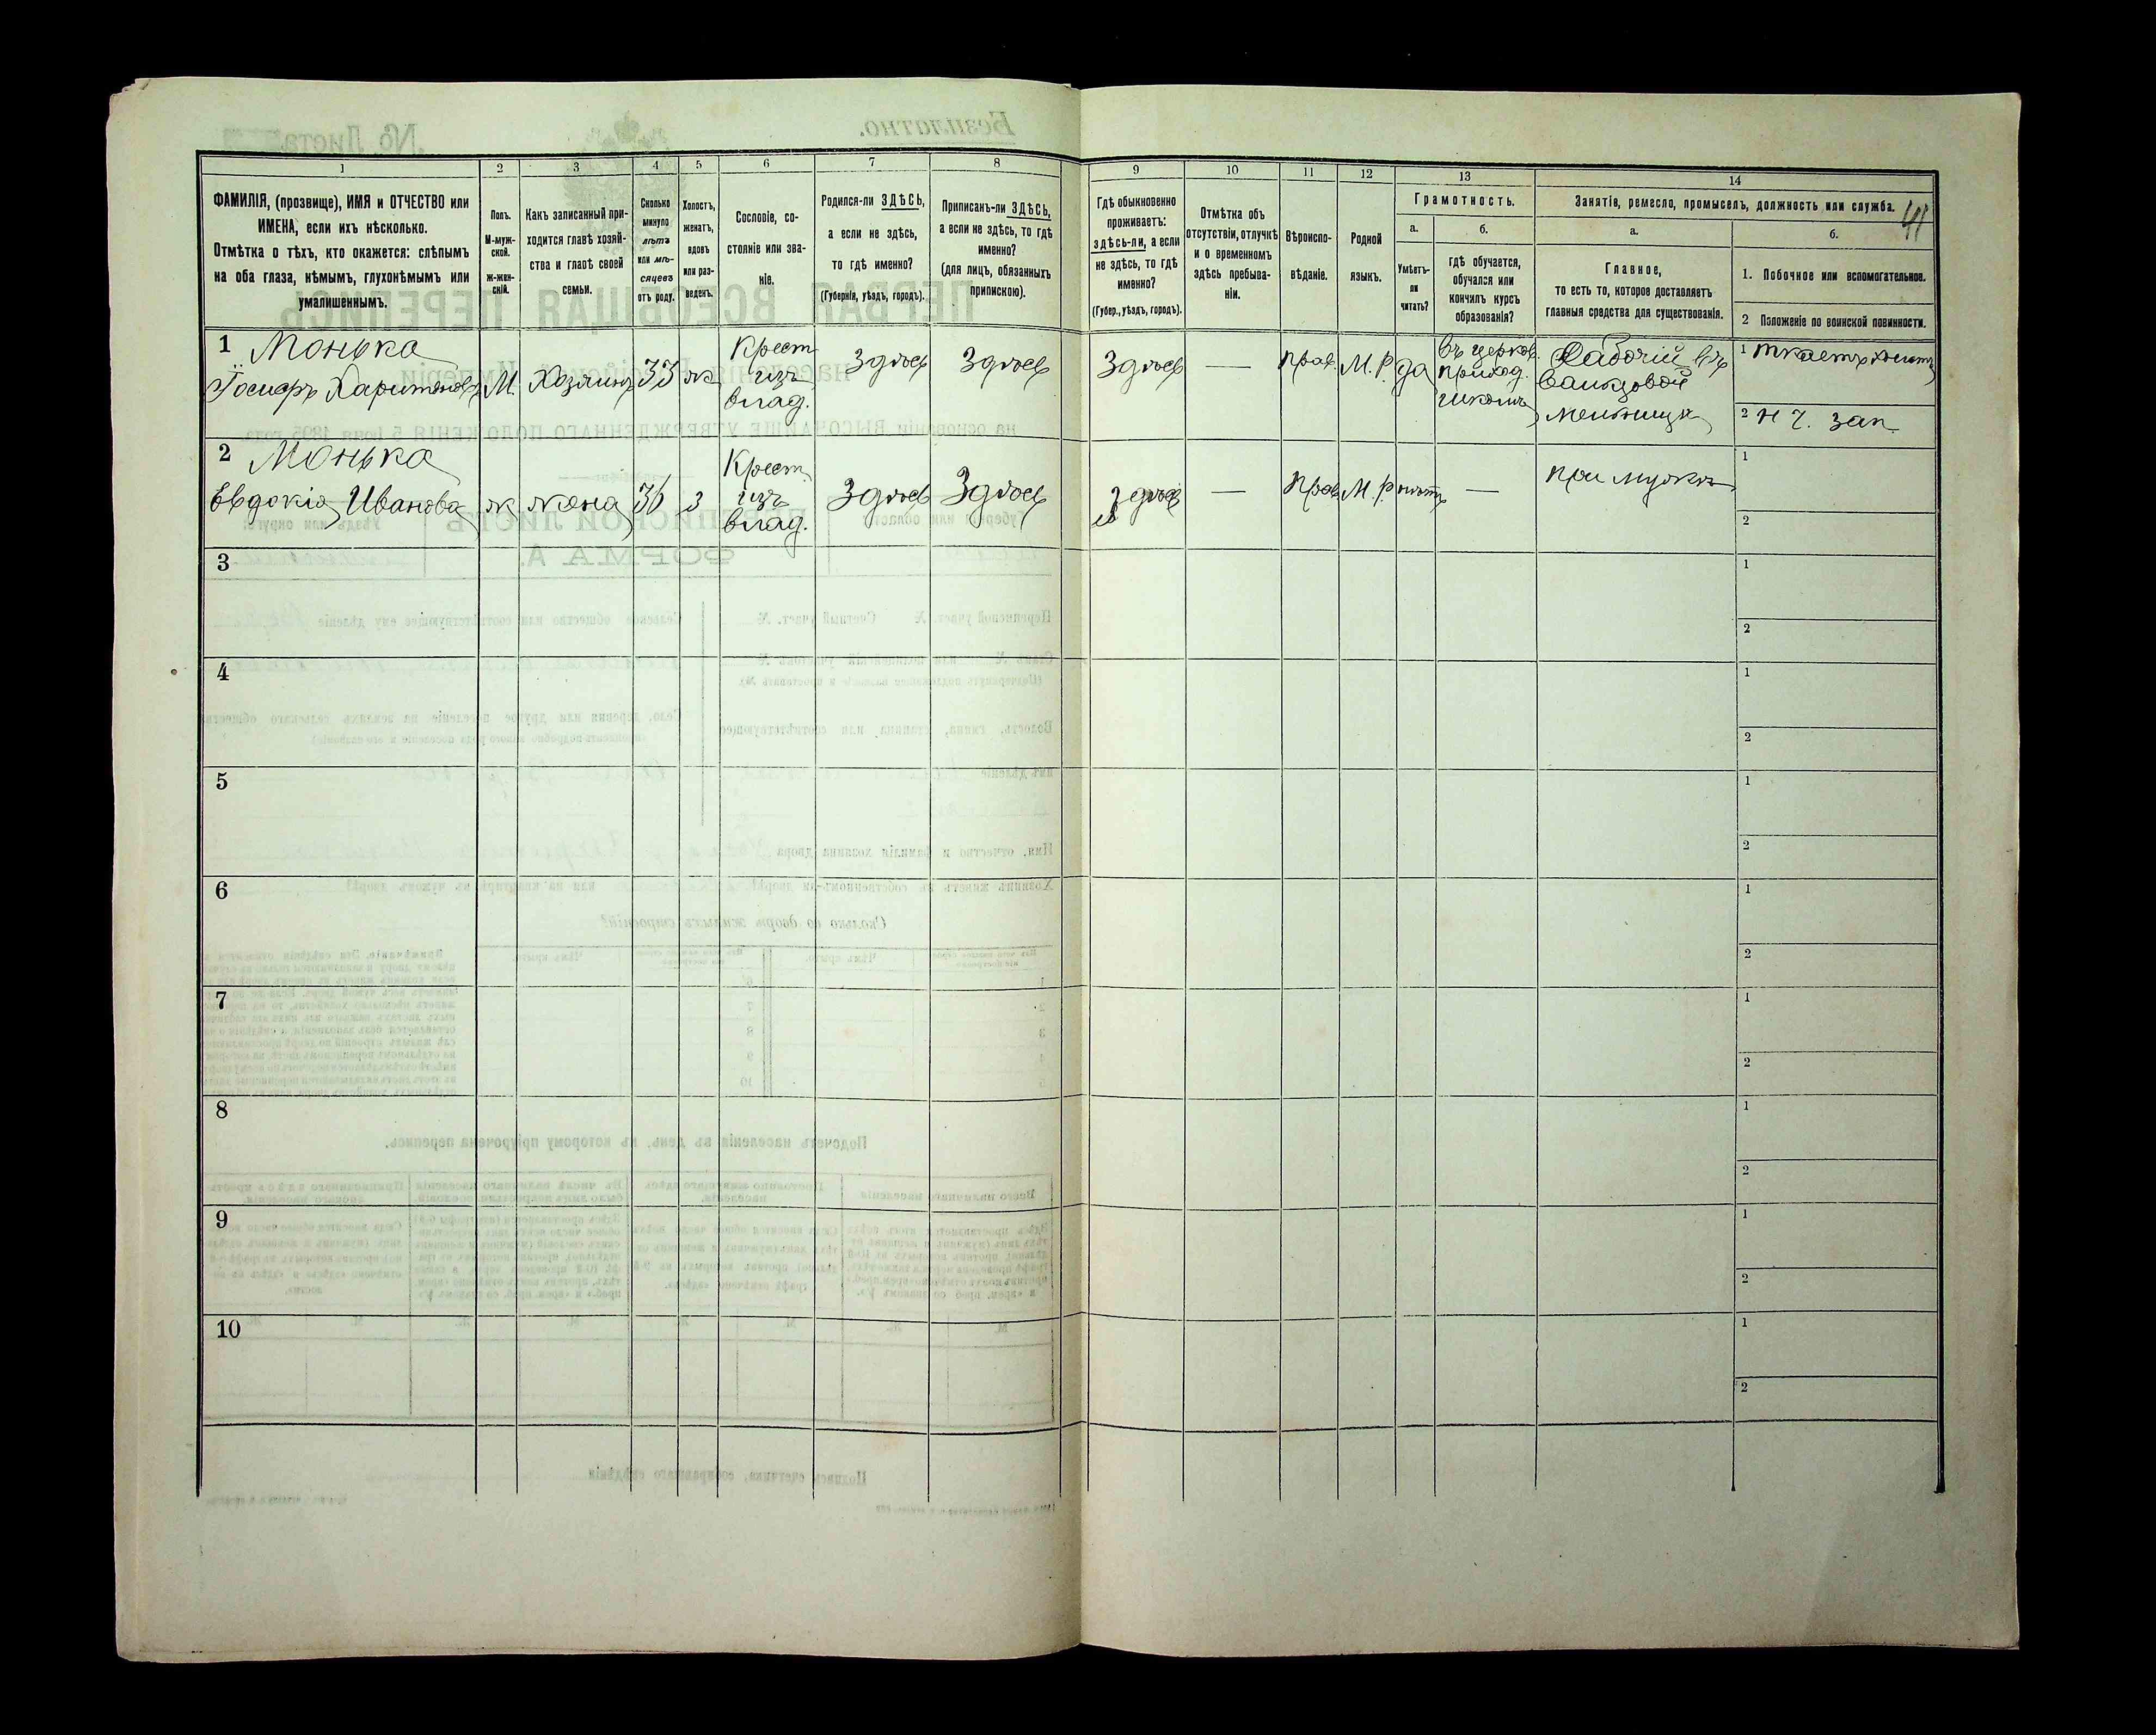 1
2
3
4
5
6
7
8
9
10
11
12
13
14
ФАМИЛІЯ, (прозвище), ИМЯ и ОТЧЕСТВО или
ИМЕНА, если ихъ нѣсколько.
Отмѣтка о тѣхъ, кто окажется: слѣпымъ
на оба глаза, нѣмымъ, глухонѣмымъ или
умалишеннымъ.
Полъ.
М-муж-
ской.
ж-жен-
скій.
Какъ записанный при-
ходится главѣ хозяй-
ства и главѣ своей
семьи.
Сколько
минуло
лѣтъ
или мѣ-
сяцевъ
отъ роду.
Холостъ,
женатъ,
вдовъ
или раз-
веденъ.
Сословіе, со-
стояніе или зва-
ніе.
Родился-ли ЗДѢСЬ,
а если не здѣсь,
то гдѣ именно?
(Губернія, уѣздъ, городъ).
Приписанъ-ли ЗДѢСЬ,
а если не здѣсь, то гдѣ
именно?
(для лицъ, обязанныхъ
припискою).
Гдѣ обыкновенно
проживаетъ:
здѣсь-ли, а если
не здѣсь, то гдѣ
именно?
(Губер., уѣздъ, городъ).
Отмѣтка объ
отсутствіи, отлучкѣ
и о временномъ
здѣсь пребыва-
ніи.
Вѣроиспо-
вѣданіе.
Родной
языкъ.
Грамотность.
а.
Умѣетъ-
ли
читать?
б.
гдѣ обучается,
обучался или
кончилъ курсъ
образованія?
Занятіе, ремесло, промыселъ, должность или служба.
41
а.
Главное,
то есть то, которое доставляетъ
главныя средства для существованія.
б.
1. Побочное или вспомогательное.
2 Положеніе по воинской повинности.
1 Монька
Іосифъ Харитоновъ
М.
Хозяинъ
33
ж
Крест
изъ
влад.
Здѣсь
Здѣсь
Здѣсь
—
Прав.
М. Р.
да
въ церков.
приход.
школѣ
Рабочій въ
мельницѣ
1 ткаетъ холстъ
2 Н ч. зап.
2 Монька
Евдокія Иванова
ж
жена
36
з
Крест
изъ
влад.
Здѣсь
Здѣсь
Здѣсь
—
Прав
М. Р
нѣтъ
—
При мужѣ
1
2
3
1
2
4
1
2
5
1
2
6
1
2
7
1
2
8
1
2
9
1
2
10
1
2